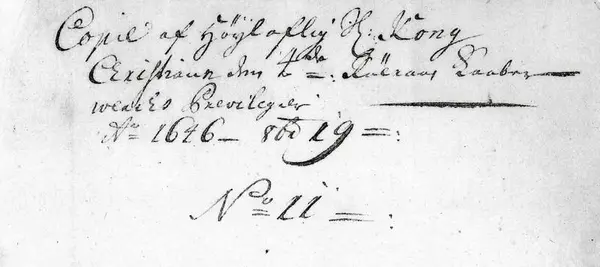 Copie af Höyloflig H: Kong
Christian den 4de=: Röeraas Kaaber
wercks Previlegier
Ao 1646 — 8bd 19 =:
No 11 =: